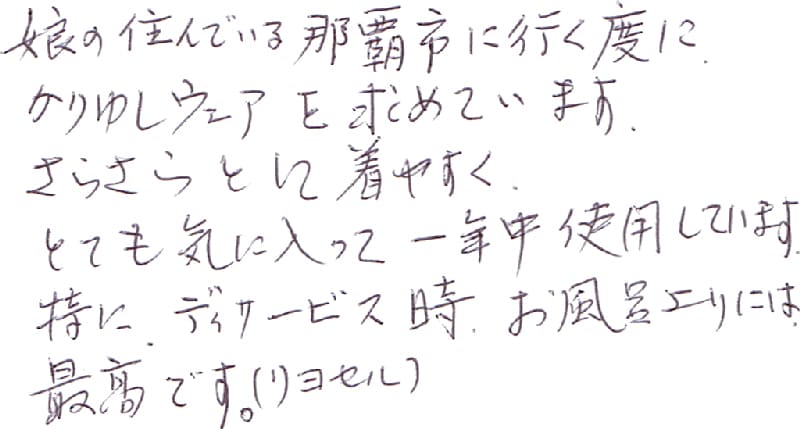 娘の住んでいる那覇市に行く度に
かりゆしウェアを求めています。
さらさらとして着やすく、
とても気に入って一年中使用しています。
特に、ディサービス時、お風呂エリには、
最高です。(リヨセル)